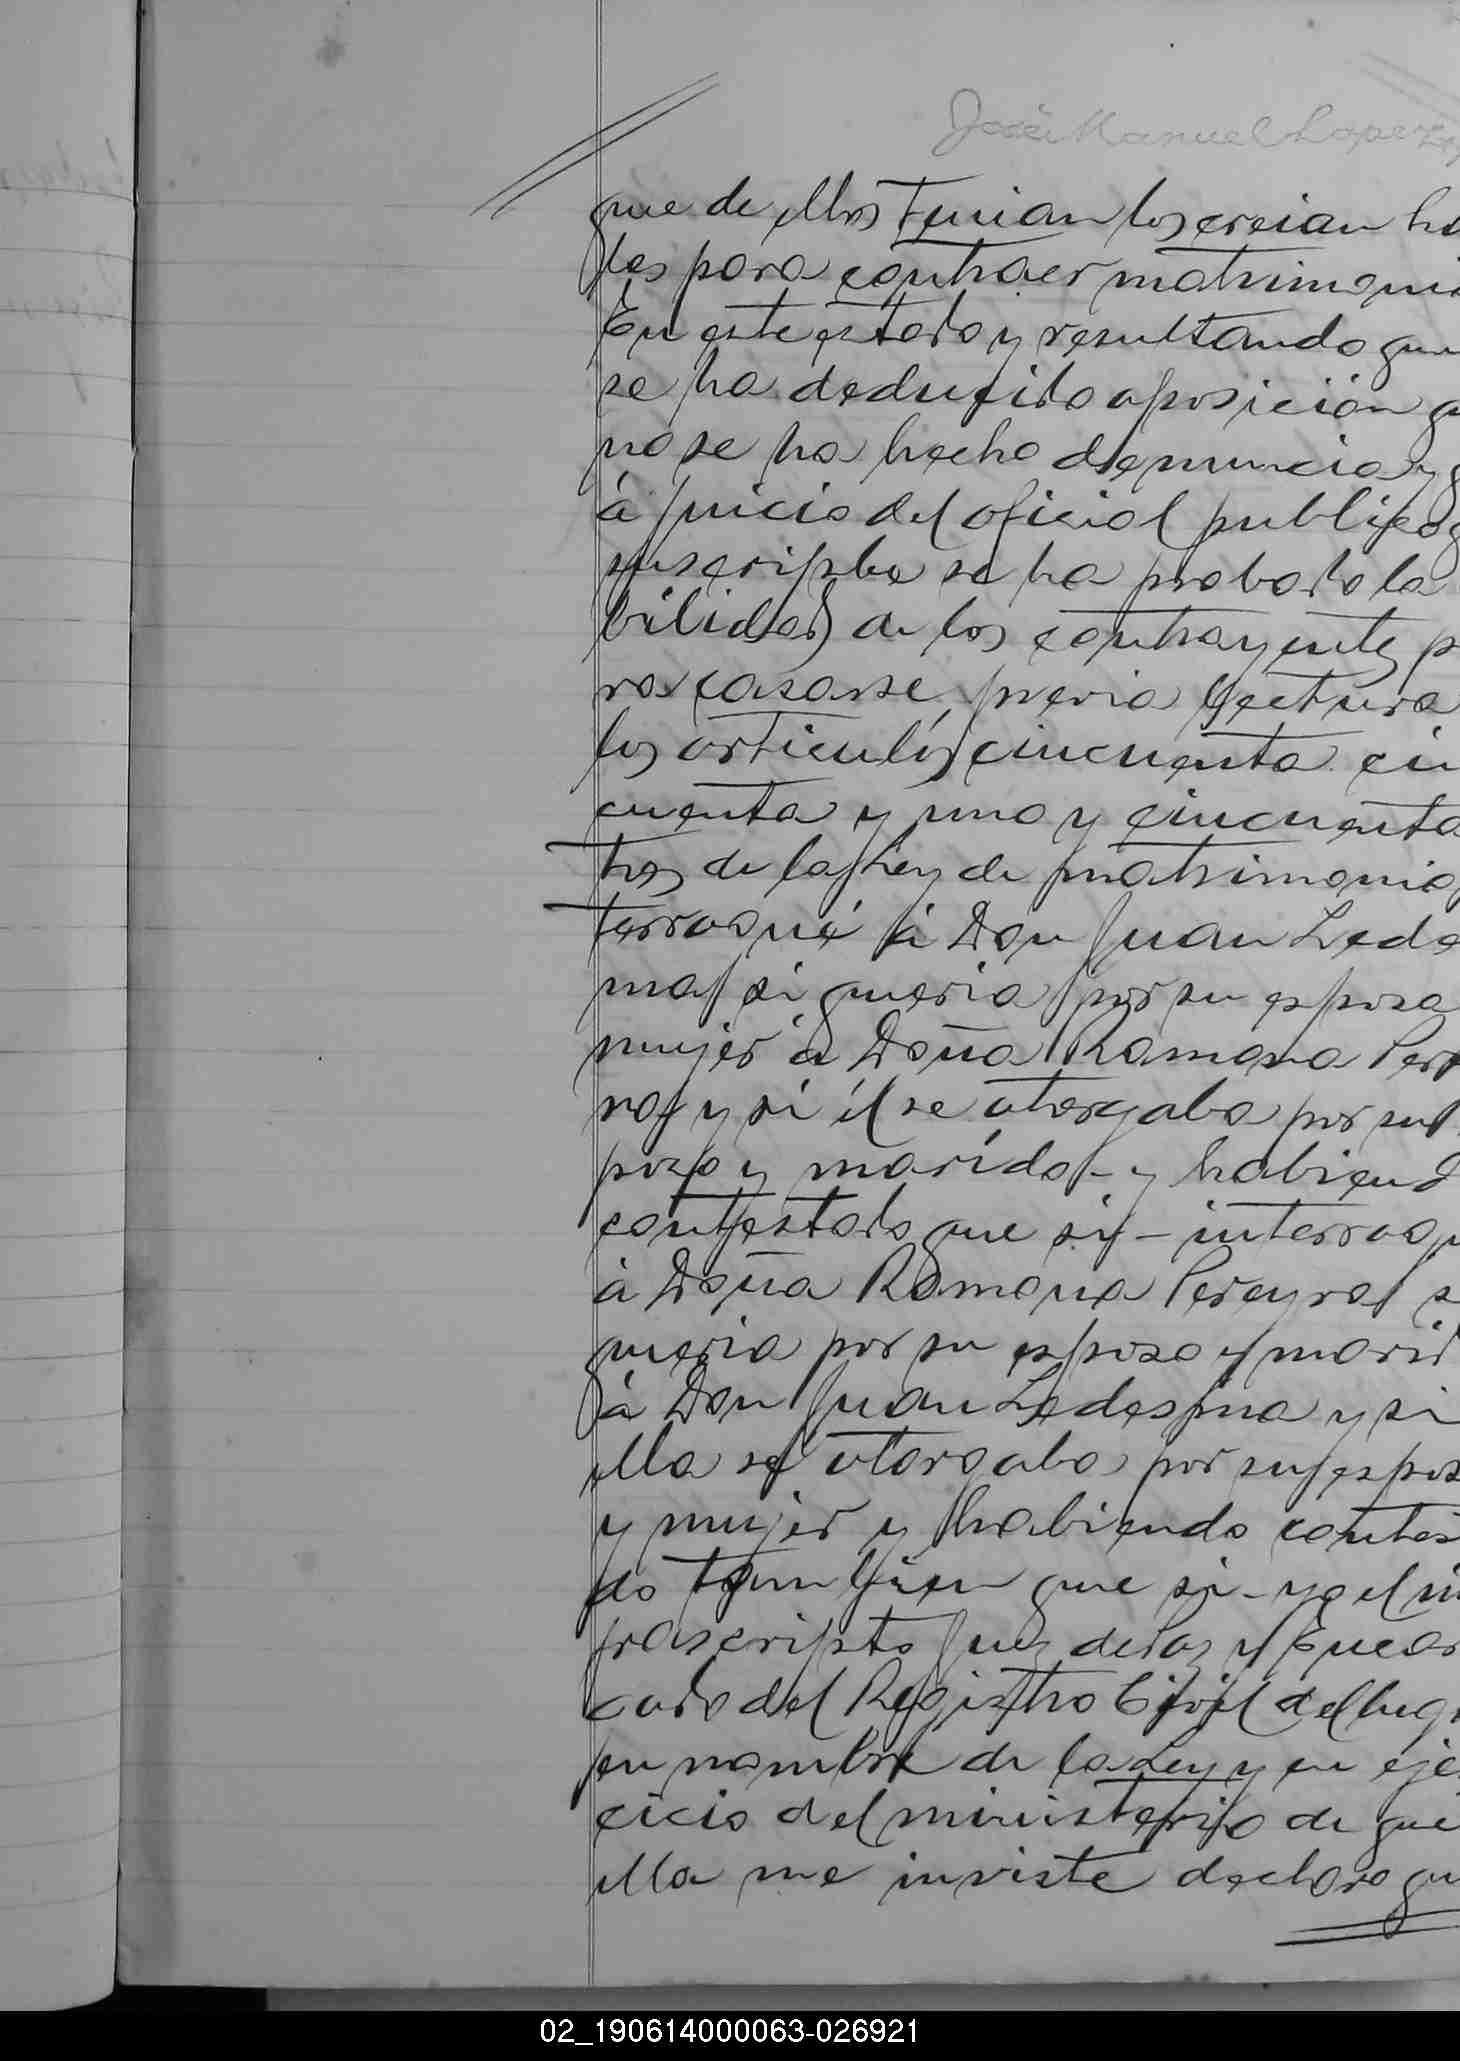 José Manuel Lopez
que de ellos tenian los creian ha
les para contraer matrimonio
En este estado y resultando que
se ha deducido oposición q
no se ha hecho denuncia y q
á juicio del oficial publico q
suscripbe se ha probado la
bilidad de los contrayentes p
ra casarse, previa lectura
los articulos cincuenta cin
cuenta y uno y cincuenta
tres de la Ley de matrimonio
terroqué á Don Juan Lede
ma si queria por su esposa
mujer á Doña Ramona Per
ra y si él se otorgaba por su
pozo y marido - y habiend
contestado que si - interrog
á Doña Ramona Pereyra s
queria por su esposo y marid
á Don Juan Ledesma y si
ella se otorgaba por su espos
y mujer y habiendo contes
do tambien que si - yo el in
frascripto Juez de Paz y Encar
gado del Registro Civil del lug
en nombre de la Ley y en eje
cicio del ministerio de que
ella me inviste declaro qu
02_190614000063-026921